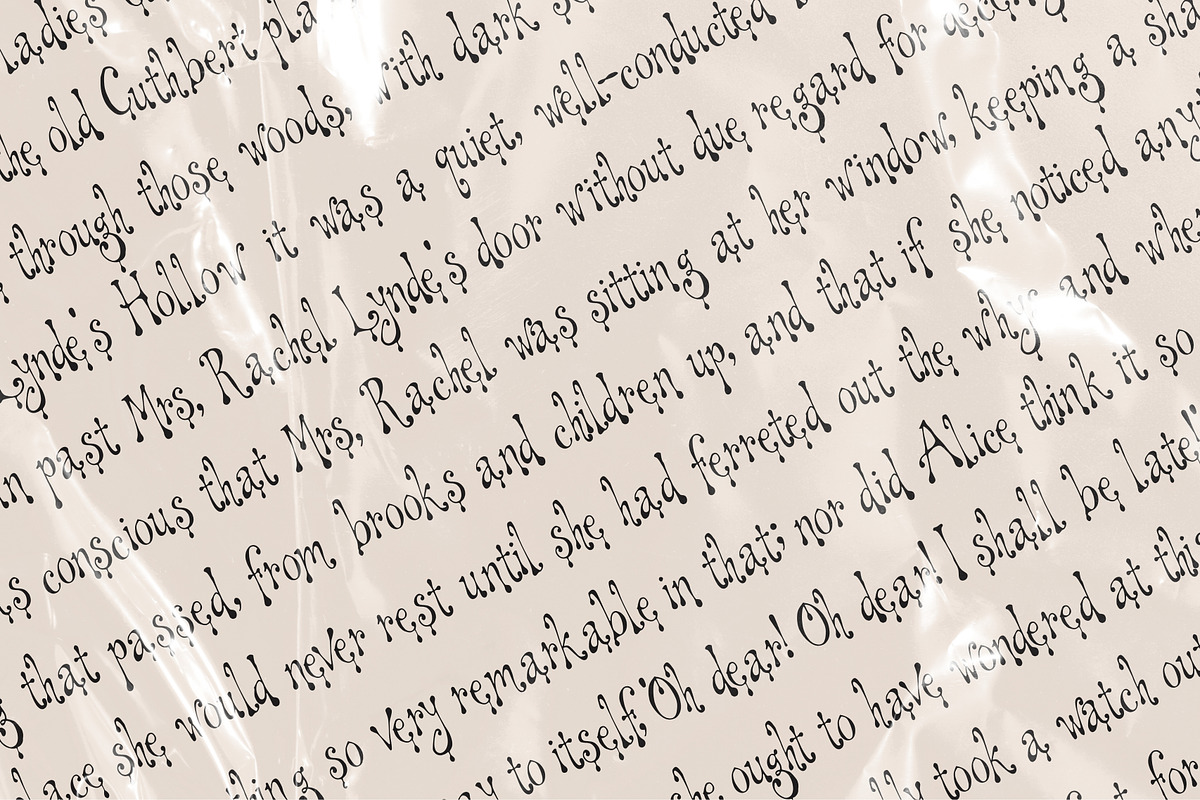 Ladies
the old Cuthbert pla
through those woods, with dark s
Lynde's Hollow it was a quiet, well-conducted
in past Mrs, Rachel Lynde's door without due regard for
as conscious that Mrs, Rachel was sitting at her window, keeping a sha
g that passed, from brooks and children up, and that if she noticed any
lace she would never rest until she had ferreted out the whys and whe
hing so very remarkable in that; nor did Alice think it so
ay to itself,'Oh dear! Oh dear! I shall be late!'
he ought to have wondered at this
lly took a watch out
for